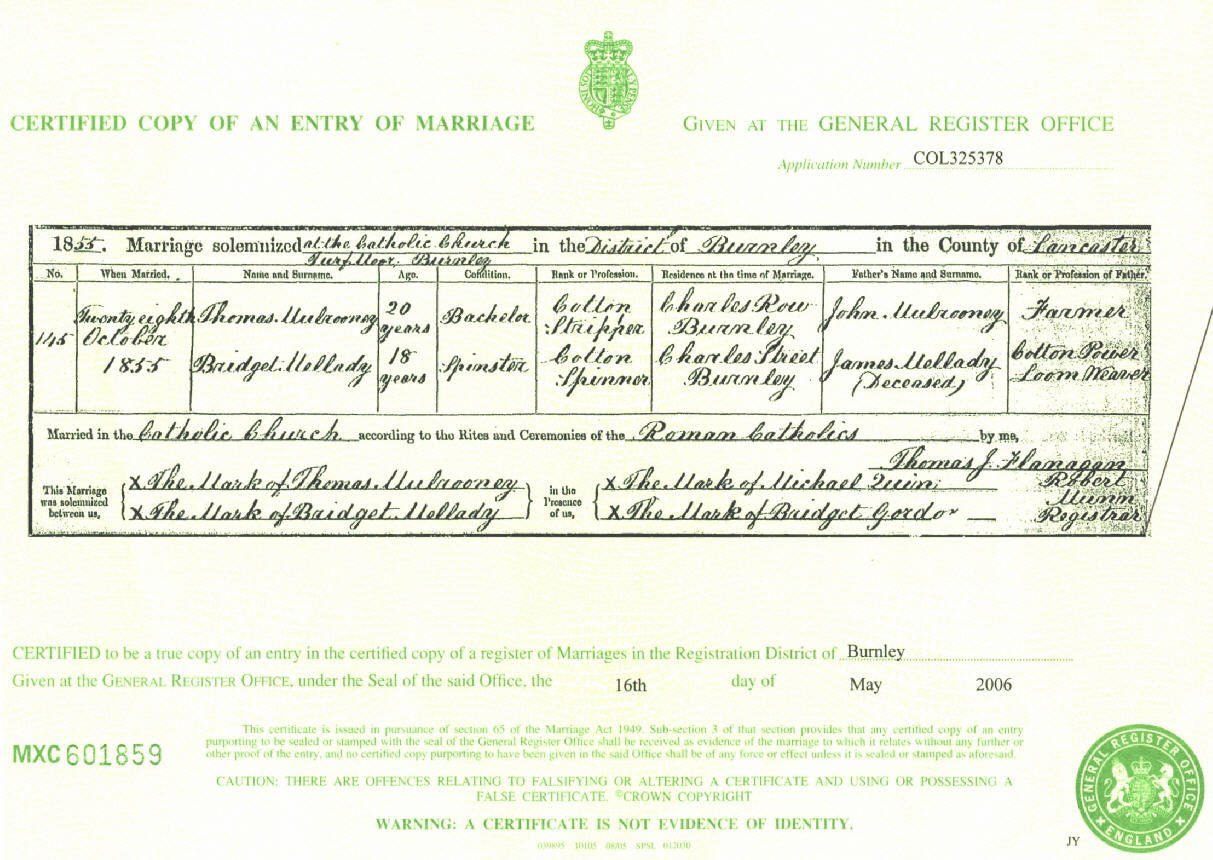 CERTIFIED COPY OF AN ENTRY OF MARRIAGE
GIVEN AT THE GENERAL REGISTER OFFICE
Application Number COL325378
1855. Marriage solemnized at the Catholic Church in the District of Burnley in the County of Lancaster
Turf Moor. Burnley
No. When Married. Name and Surname. Age. Condition. Rank or Profession. Residence at the time of Marriage. Father's Name and Surname. Rank or Profession of Father.
145 Twenty eighth October 1855 Thomas Mulrooney 20 years Bachelor Cotton Stripper Charles Row Burnley John Mulrooney Farmer
Bridget Mellady 18 years Spinster Cotton Spinner Charles Street Burnley James Mellady (Deceased) Cotton Power Loom Weaver
Married in the Catholic Church according to the Rites and Ceremonies of the Roman Catholics by me,
Thomas J. Flanagan
This Marriage was solemnized between us, X The Mark of Thomas Mulrooney
X The Mark of Bridget Mellady
in the Presence of us, X The Mark of Michael Quin
X The Mark of Bridget Gordor
Robert
Munn
Registrar
CERTIFIED to be a true copy of an entry in the certified copy of a register of Marriages in the Registration District of Burnley
Given at the GENERAL REGISTER OFFICE, under the Seal of the said Office, the 16th day of May 2006
This certificate is issued in pursuance of section 65 of the Marriage Act 1949. Sub-section 3 of that section provides that any certified copy of an entry
purporting to be sealed or stamped with the seal of the General Register Office shall be received as evidence of the marriage to which it relates without any further or
other proof of the entry, and no certified copy purporting to have been given in the said Office shall be of any force or effect unless it is sealed or stamped as aforesaid.
MXC 601859
CAUTION: THERE ARE OFFENCES RELATING TO FALSIFYING OR ALTERING A CERTIFICATE AND USING OR POSSESSING A
FALSE CERTIFICATE. ©CROWN COPYRIGHT
WARNING: A CERTIFICATE IS NOT EVIDENCE OF IDENTITY.
GENERAL REGISTER OFFICE
ENGLAND
JY